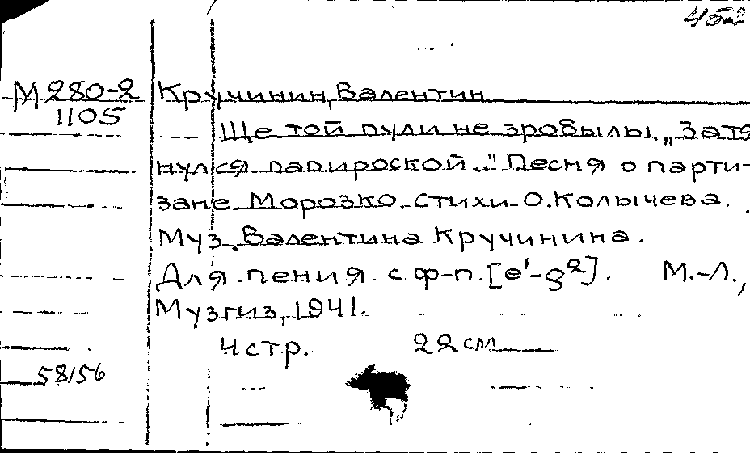 452
М 280-2
1105
Кручинин, Валентин
Ще той пули не зробылы. „Затя-
нулся папироской..." Песня о парти-
зане Морозко. Стихи О. Колычева.
Муз. Валентина Кручинина.
Для пения с ф-п. [e¹-g²]. М.-Л.,
Музгиз, 1941.
4 стр. 22 см
58156